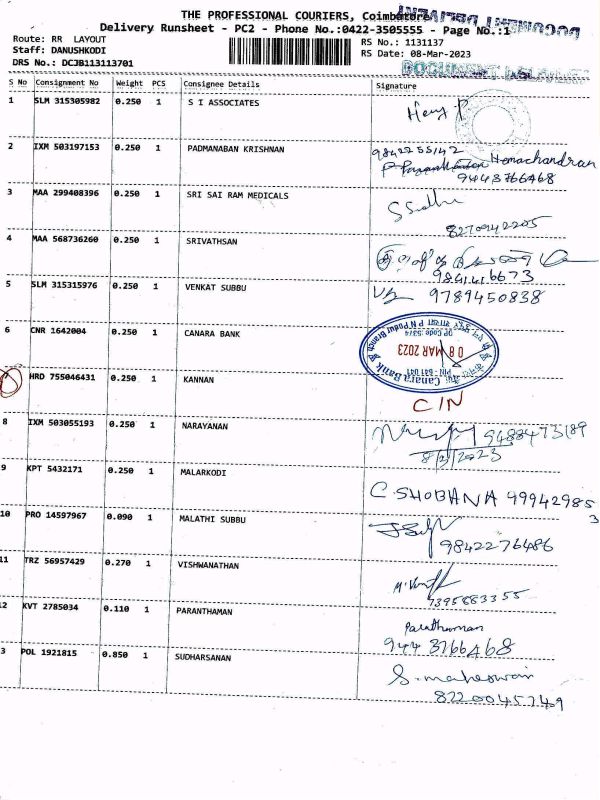 THE PROFESSIONAL COURIERS, Coimbatore
Delivery Runsheet - PC2 - Phone No.:0422-3505555 - Page No.:1
Route: RR LAYOUT
RS No.: 1131137
Staff: DANUSHKODI
RS Date: 08-Mar-2023
DRS No.: DCJB113113701
S No Consignment No Weight PCS Consignee Details Signature
1 SLM 315305982 0.250 1 S I ASSOCIATES
2 IXM 503197153 0.250 1 PADMANABAN KRISHNAN 9842255142
Hemachandran
9443766468
3 MAA 299408396 0.250 1 SRI SAI RAM MEDICALS
8270942205
4 MAA 568736260 0.250 1 SRIVATHSAN
5 SLM 315315976 0.250 1 VENKAT SUBBU 9789450838
6 CNR 1642004 0.250 1 CANARA BANK
08 MAR 2023
Canara Bank
P N Pudur Branch
7 HRD 755046431 0.250 1 KANNAN
CIN
8 IXM 503055193 0.250 1 NARAYANAN 9488473189
8/3/2023
9 KPT 5432171 0.250 1 MALARKODI
C. SHOBANA 999429853
10 PRO 14597967 0.090 1 MALATHI SUBBU
9842276486
11 TRZ 56957429 0.270 1 VISHWANATHAN
7395883355
2 KVT 2785034 0.110 1 PARANTHAMAN
Paranthaman
9443766468
3 POL 1921815 0.850 1 SUDHARSANAN
S. maheswari
8220045749